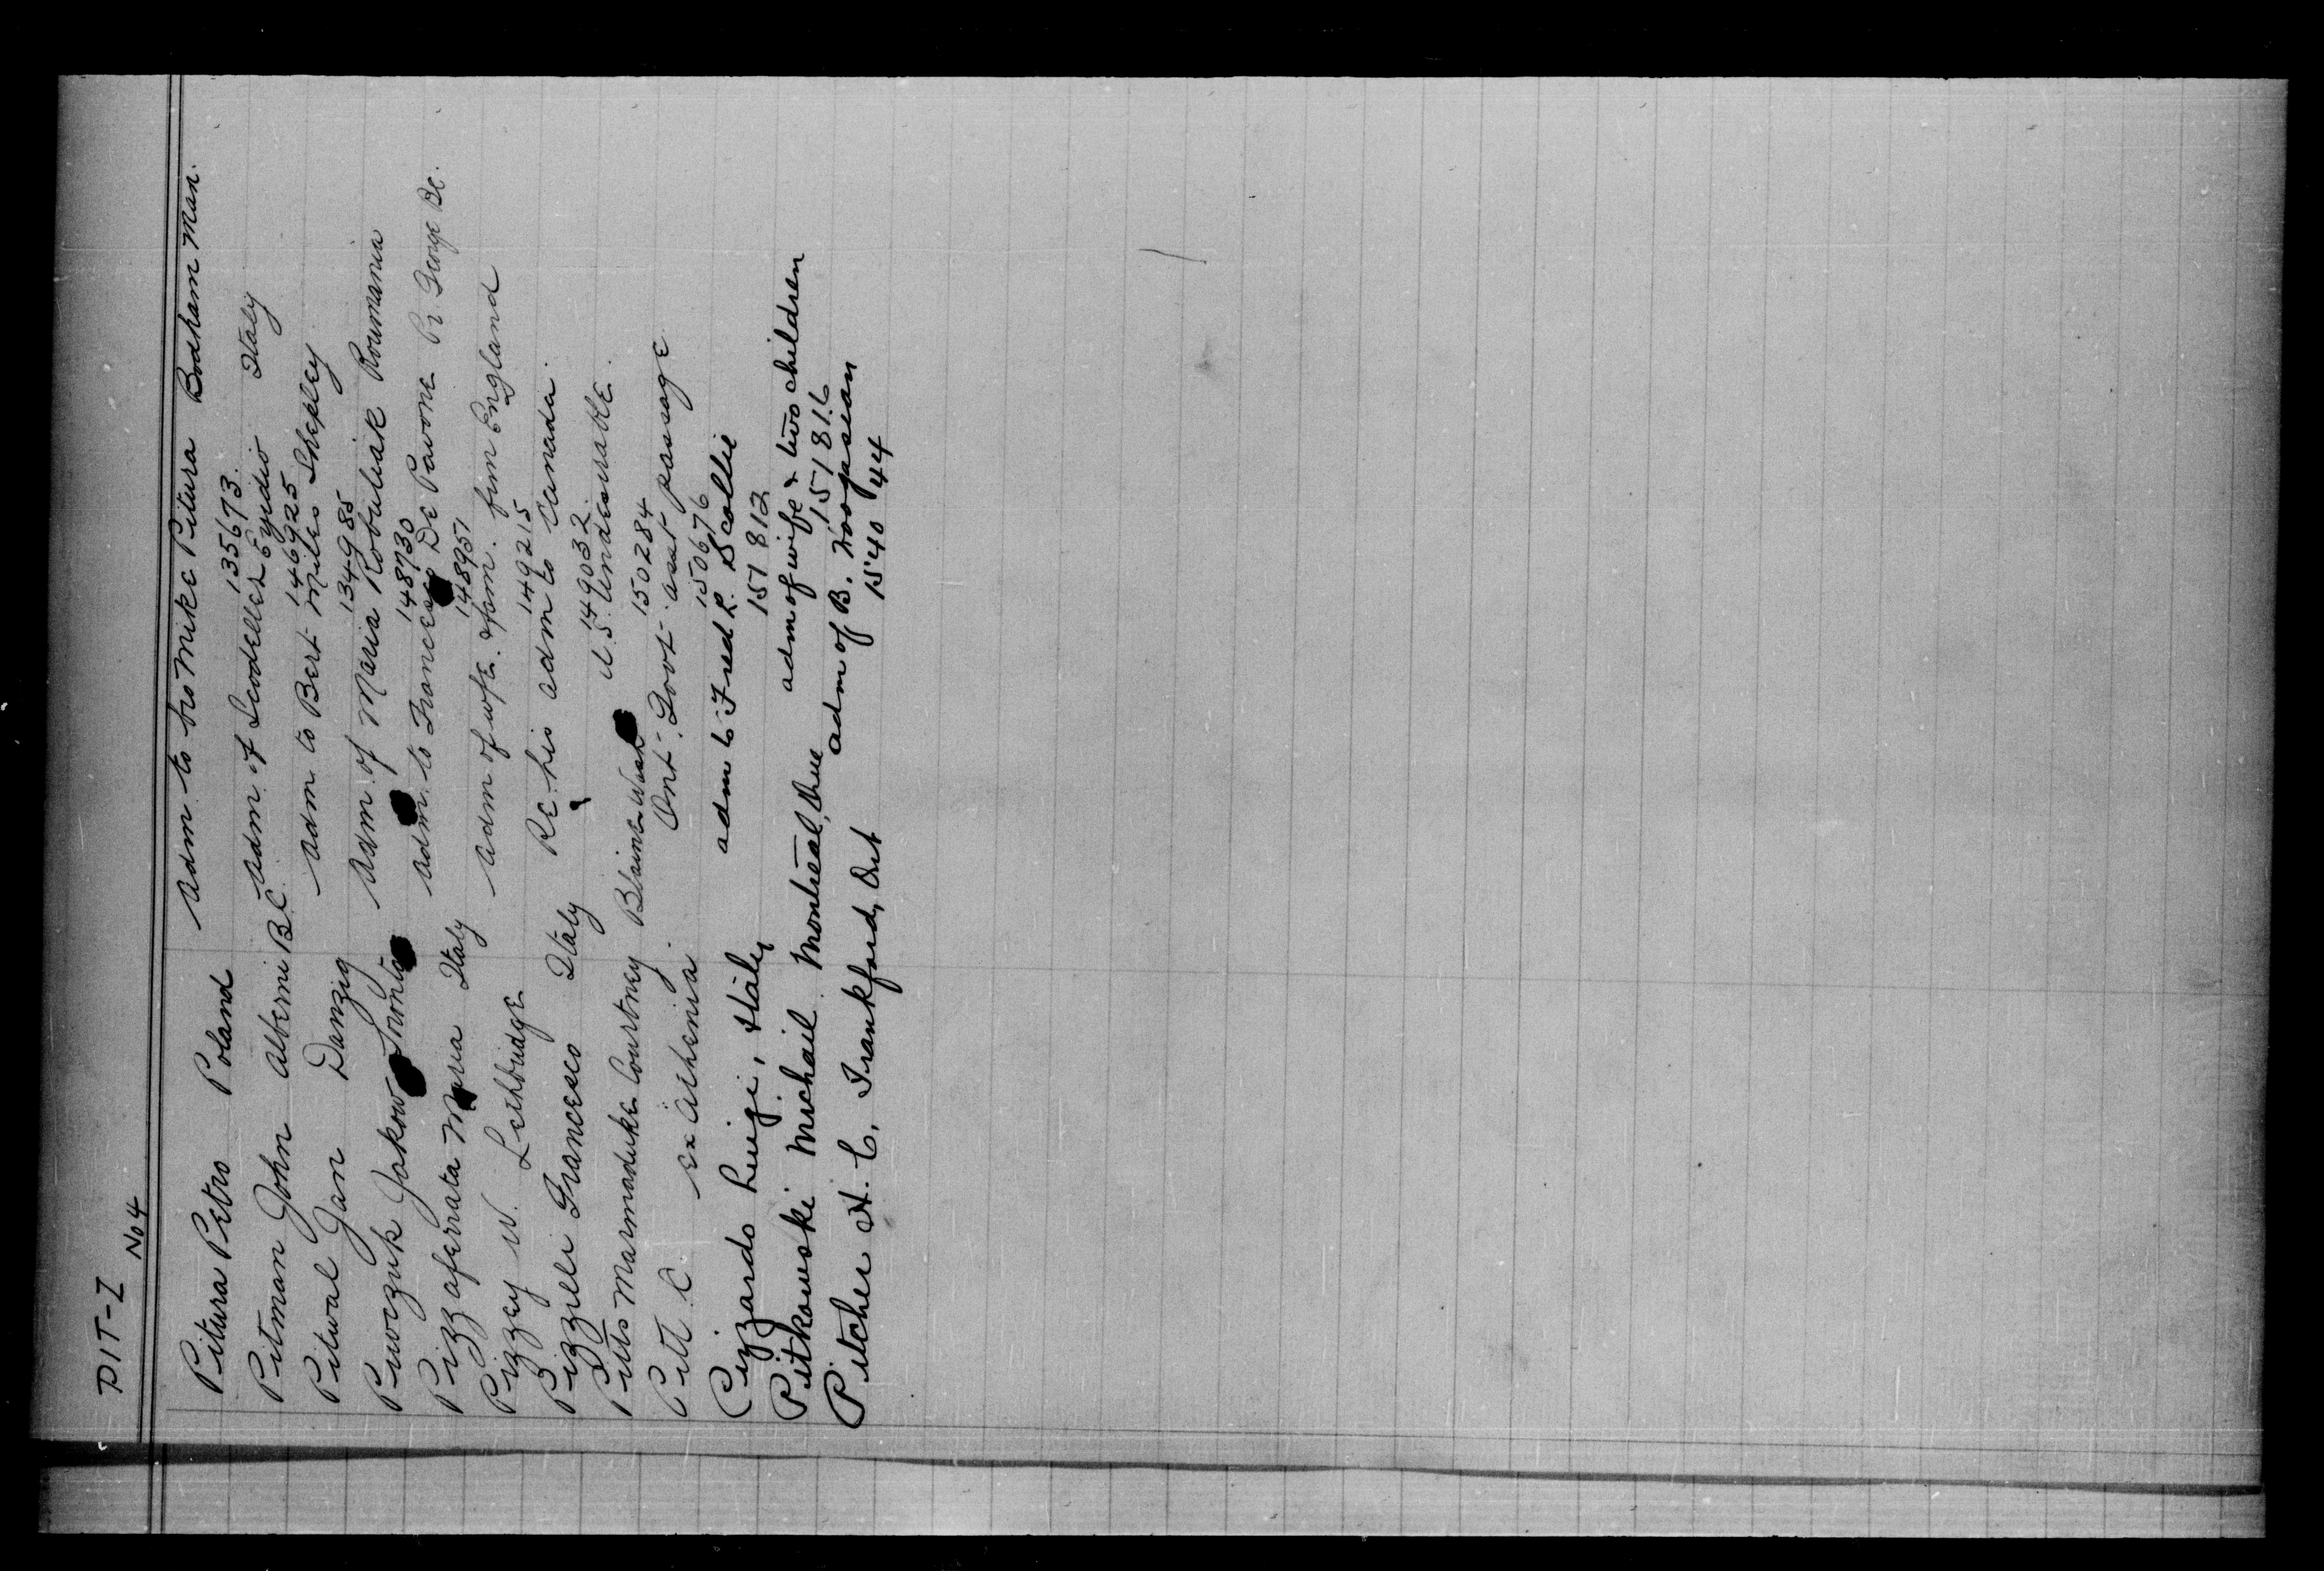 PIT-Z
No 4
Pitura Petro Poland Adm to bro Mike Pitura Brodham Man.
135673
Pitman John Alberni B.C. Adm of Leodeller Egidio Italy
146925
Pitwal Jan Danzig Adm to Bert Miles Shepley
134985
Piwczuk Jakow Toronto Adm of Maria Robuliak Roumania
148730
Pizzaferrata Maria Italy Adm to Francesco De Pavone Pr George BC.
148951
Pizzey W. Lethbridge Adm of wife & fam. from England
149215
Pizzeli Francesco Italy Re his adm to Canada.
149032
Pitts Marmaduke Courtney Blaine Wash U.S. Undesirable.
150284
Pitt C. ex Athenia Ont. Govt. asst passage
150676
Pizzardo Luigi, Italy adm to Fred R. Scollie
151812
Pitkowski Michail Montreal, Que adm of wife & two children
151816
Pitcher H. C. Frankford, Ont adm of B.
154044